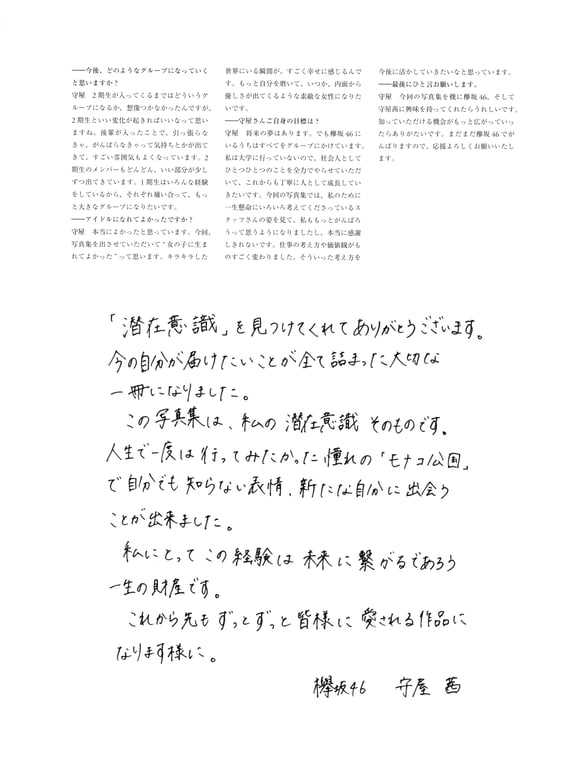 ――今後、どのようなグループになっていく
と思いますか？
守屋　2期生が入ってくるまではどういうグ
ループになるか、想像つかなかったんですが、
2期生といい変化が起きればいいなって思い
ますね。後輩が入ったことで、引っ張らな
きゃ、がんばらなきゃって気持ちとかが出て
きて、すごい雰囲気もよくなっています。2
期生のメンバーもどんどん、いい部分が少し
ずつ出てきています。1期生はいろんな経験
をしているから、それぞれ補い合って、もっ
と大きなグループになりたいです。
――アイドルになれてよかったですか？
守屋　本当によかったと思っています。今回、
写真集を出させていただいて“女の子に生ま
れてよかった”って思います。キラキラした
世界にいる瞬間が、すごく幸せに感じるんで
す。もっと自分を磨いて、いつか、内面から
優しさが出てくるような素敵な女性になりた
いです。
――守屋さんご自身の目標は？
守屋　将来の夢はあります。でも欅坂46に
いるうちはすべてをグループにかけています。
私は大学に行っていないので、社会人として
ひとつひとつのことを全力でやらせていただ
いて、これからも丁寧に人として成長してい
きたいです。今回の写真集では、私のために
一生懸命にいろいろ考えてくださっているス
タッフさんの姿を見て、私ももっとがんばろ
うって思うようになりましたし、本当に感謝
しきれないです。仕事の考え方や価値観がも
のすごく変わりました。そういった考え方を
今後に活かしていきたいなと思っています。
――最後にひと言お願いします。
守屋　今回の写真集を機に欅坂46、そして
守屋茜に興味を持ってくれたらうれしいです。
知っていただける機会がもっと広がっていっ
たらありがたいです。まだまだ欅坂46でが
んばりますので、応援よろしくお願いいたし
ます。
「潜在意識」を見つけてくれてありがとうございます。
今の自分が届けたいことが全て詰まった大切な
一冊になりました。
この写真集は、私の潜在意識そのものです。
人生で一度は行ってみたかった憧れの「モナコ公国」
で自分でも知らない表情、新たな自分に出会う
ことが出来ました。
私にとってこの経験は未来に繋がるであろう
一生の財産です。
これから先もずっとずっと皆様に愛される作品に
なります様に。
欅坂46　守屋　茜